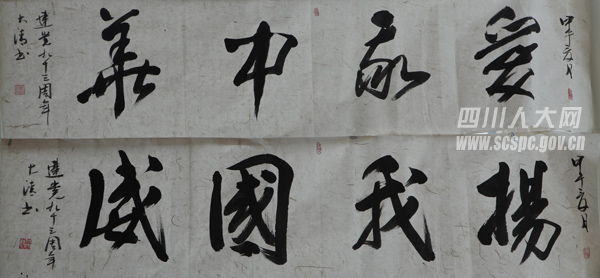 甲午夏月
愛我中華
建党九十三周年
书
四川人大网
www.scspc.gov.cn
甲午夏月
揚我國威
建党九十三周年
书